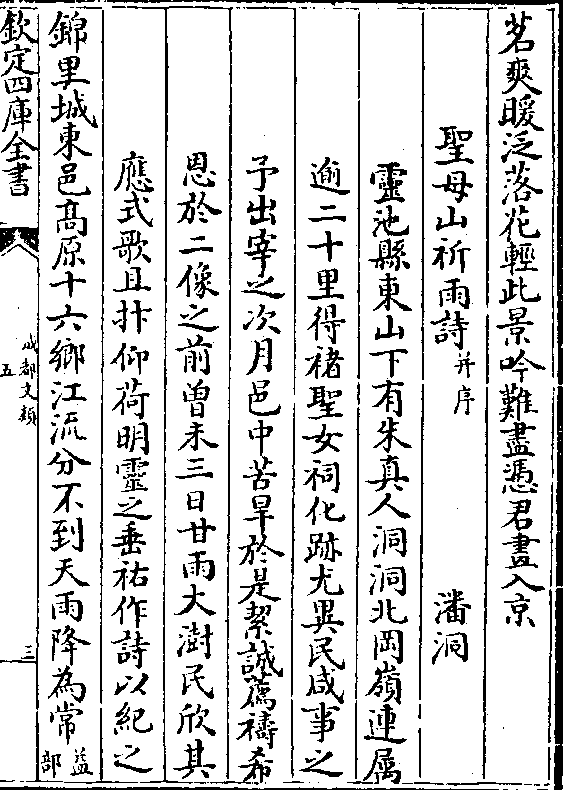 茗爽暖泛落花輕此景吟難盡憑君畫入京
聖母山祈雨詩并序 潘洞
靈池縣東山下有朱真人洞洞北岡嶺連属
逾二十里得禇聖女祠化跡尤異民咸事之
予出宰之次月邑中苦旱於是絜誠薦禱希
恩於二像之前曾未三日甘雨大澍民欣其
應式歌且抃仰荷明靈之垂祐作詩以紀之
錦里城東邑髙原十六鄉江流分不到天雨降為常益部
欽定四庫全書
成都文類
五
三